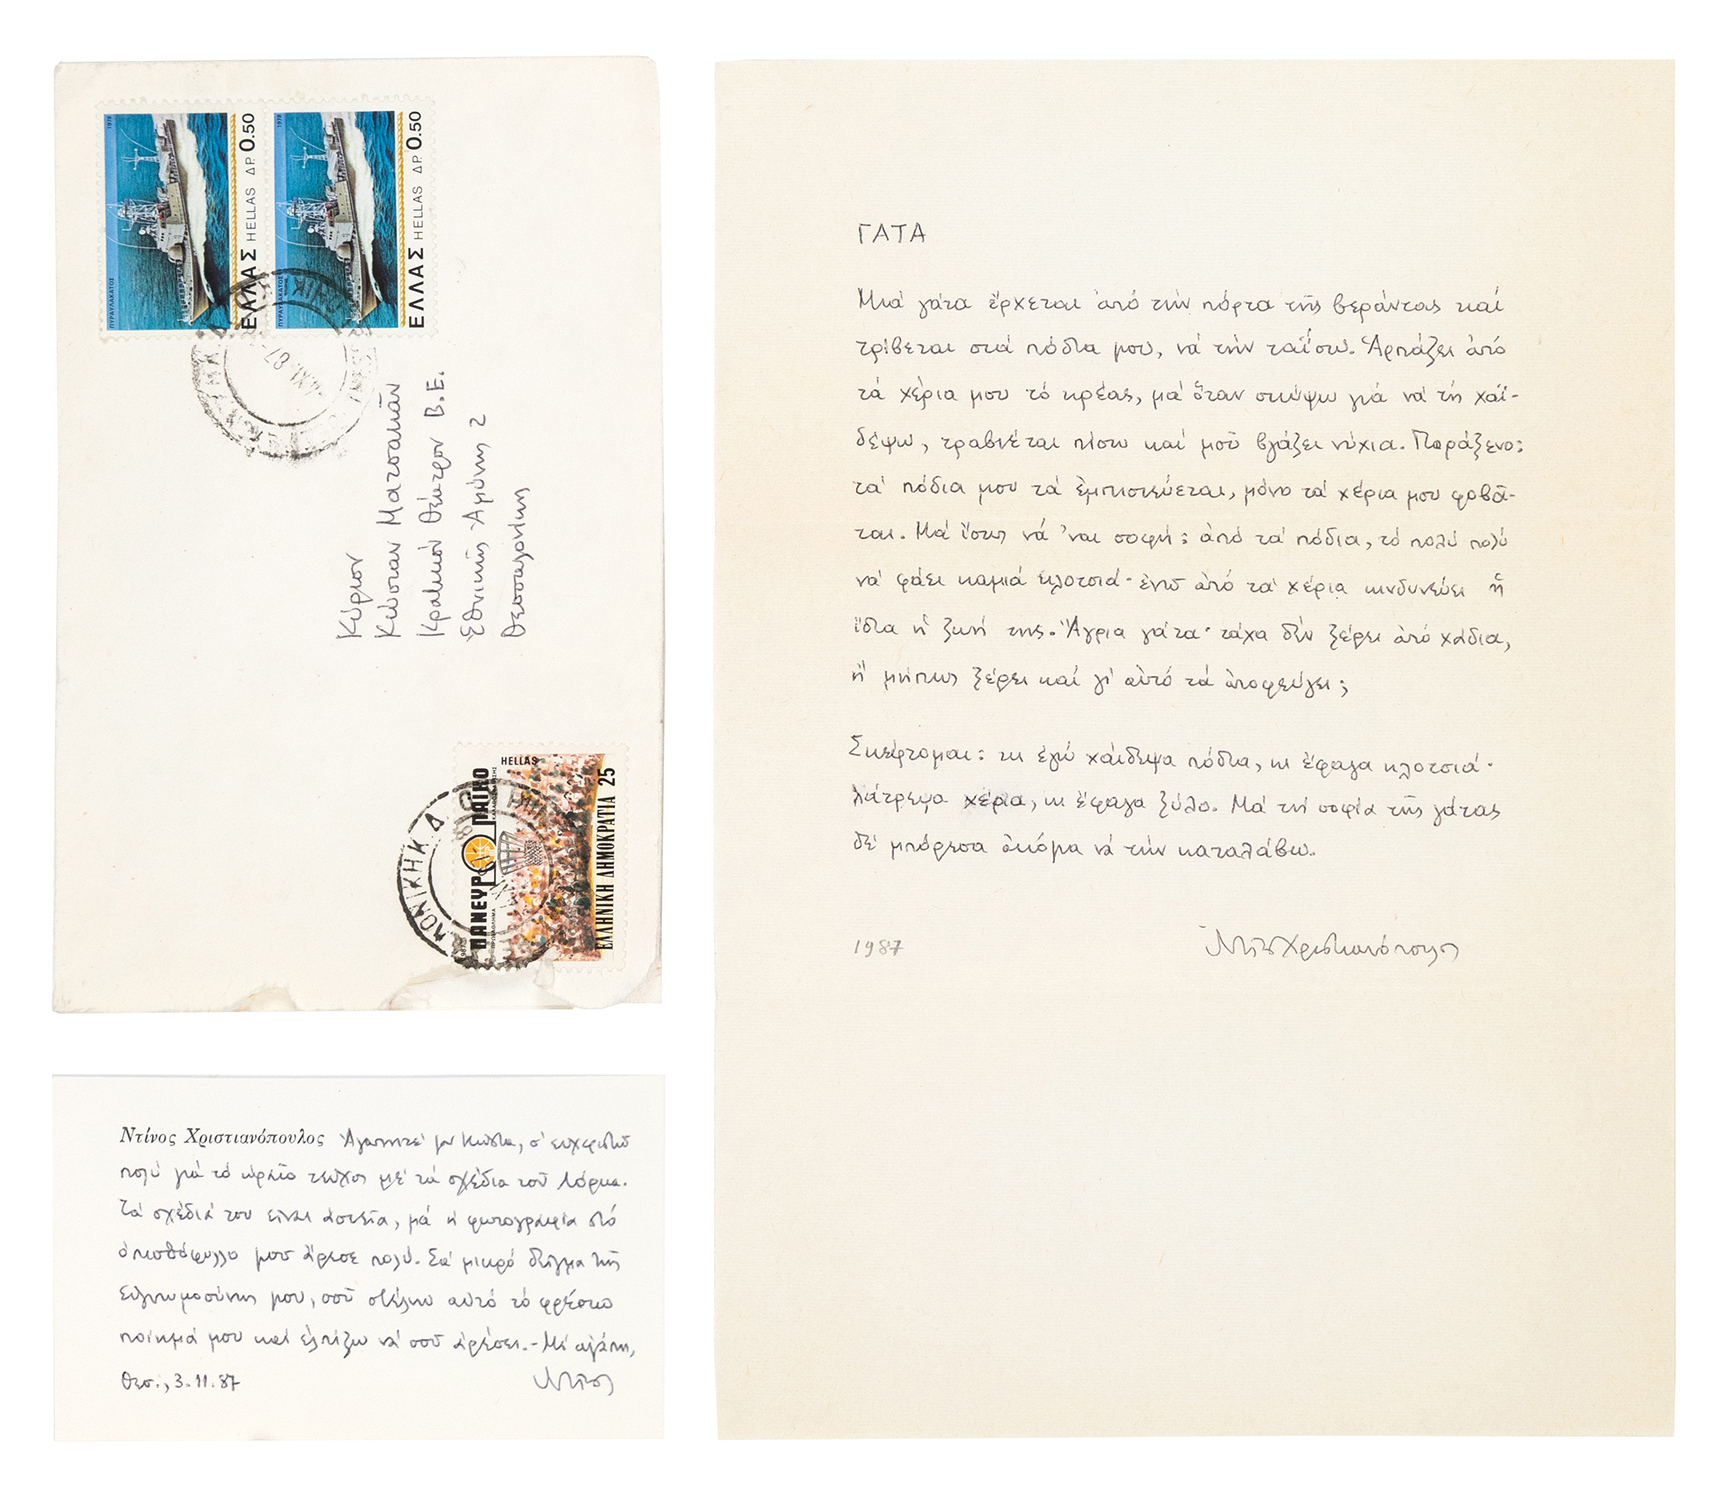 1978
ΠΥΡΑΥΛΑΚΑΤΟΣ
ΕΛΛΑΣ HELLAS ΔΡ. 0.50
1978
ΠΥΡΑΥΛΑΚΑΤΟΣ
ΕΛΛΑΣ HELLAS ΔΡ. 0.50
Κύριον
Κώσταν Ματσακᾶν
Κρατικόν Θέατρον Β.Ε.
Ἐθνικῆς Ἀμύνης 2
Θεσσαλονίκης
HELLAS
ΠΑΝΕΥΡΩΠΑΪΚΟ
ΕΛΛΗΝΙΚΗ ΔΗΜΟΚΡΑΤΙΑ 25
Ντίνος Χριστιανόπουλος Ἀγαπητέ μου Κώστα, σ' εὐχαριστῶ
πολύ γιά τό ὡραῖο τεῦχος μέ τά σχέδια τοῦ Λόρκα.
Τά σχέδιά του εἶναι ἀστεῖα, μά ἡ φωτογραφία στό
ὀπισθόφυλλο μοῦ ἄρεσε πολύ. Σά μικρό δεῖγμα τῆς
εὐγνωμοσύνης μου, σοῦ στέλνω αὐτό τό φρέσκο
ποίημά μου καί ἐλπίζω νά σοῦ ἀρέσει.- Μέ ἀγάπη,
Θεσ., 3.11.87 Ντῖνος
ΓΑΤΑ
Μιά γάτα ἔρχεται ἀπό τήν πόρτα τῆς βεράντας καί
τρίβεται στά πόδια μου, νά τήν ταΐσω. Ἁρπάζει ἀπό
τά χέρια μου τό κρέας, μά ὅταν σκύψω γιά νά τή χαϊ-
δέψω, τραβιέται πίσω καί μοῦ βγάζει νύχια. Παράξενο:
τά πόδια μου τά ἐμπιστεύεται, μόνο τά χέρια μου φοβᾶ-
ται. Μά ἴσως νά 'ναι σοφή: ἀπό τά πόδια, τό πολύ πολύ
νά φάει καμιά κλοτσιά· ἐνῶ ἀπό τά χέρια κινδυνεύει ἡ
ἴδια ἡ ζωή της. Ἄγρια γάτα· τάχα δέν ξέρει ἀπό χάδια,
ἤ μήπως ξέρει καί γι' αὐτό τά ἀποφεύγει;
Σκέφτομαι: κι ἐγώ χάιδεψα πόδια, κι ἔφαγα κλοτσιά·
λάτρεψα χέρια, κι ἔφαγα ξύλο. Μά τή σοφία τῆς γάτας
δέ μπόρεσα ἀκόμα νά τήν καταλάβω.
1987 Ντῖνος Χριστιανόπουλος